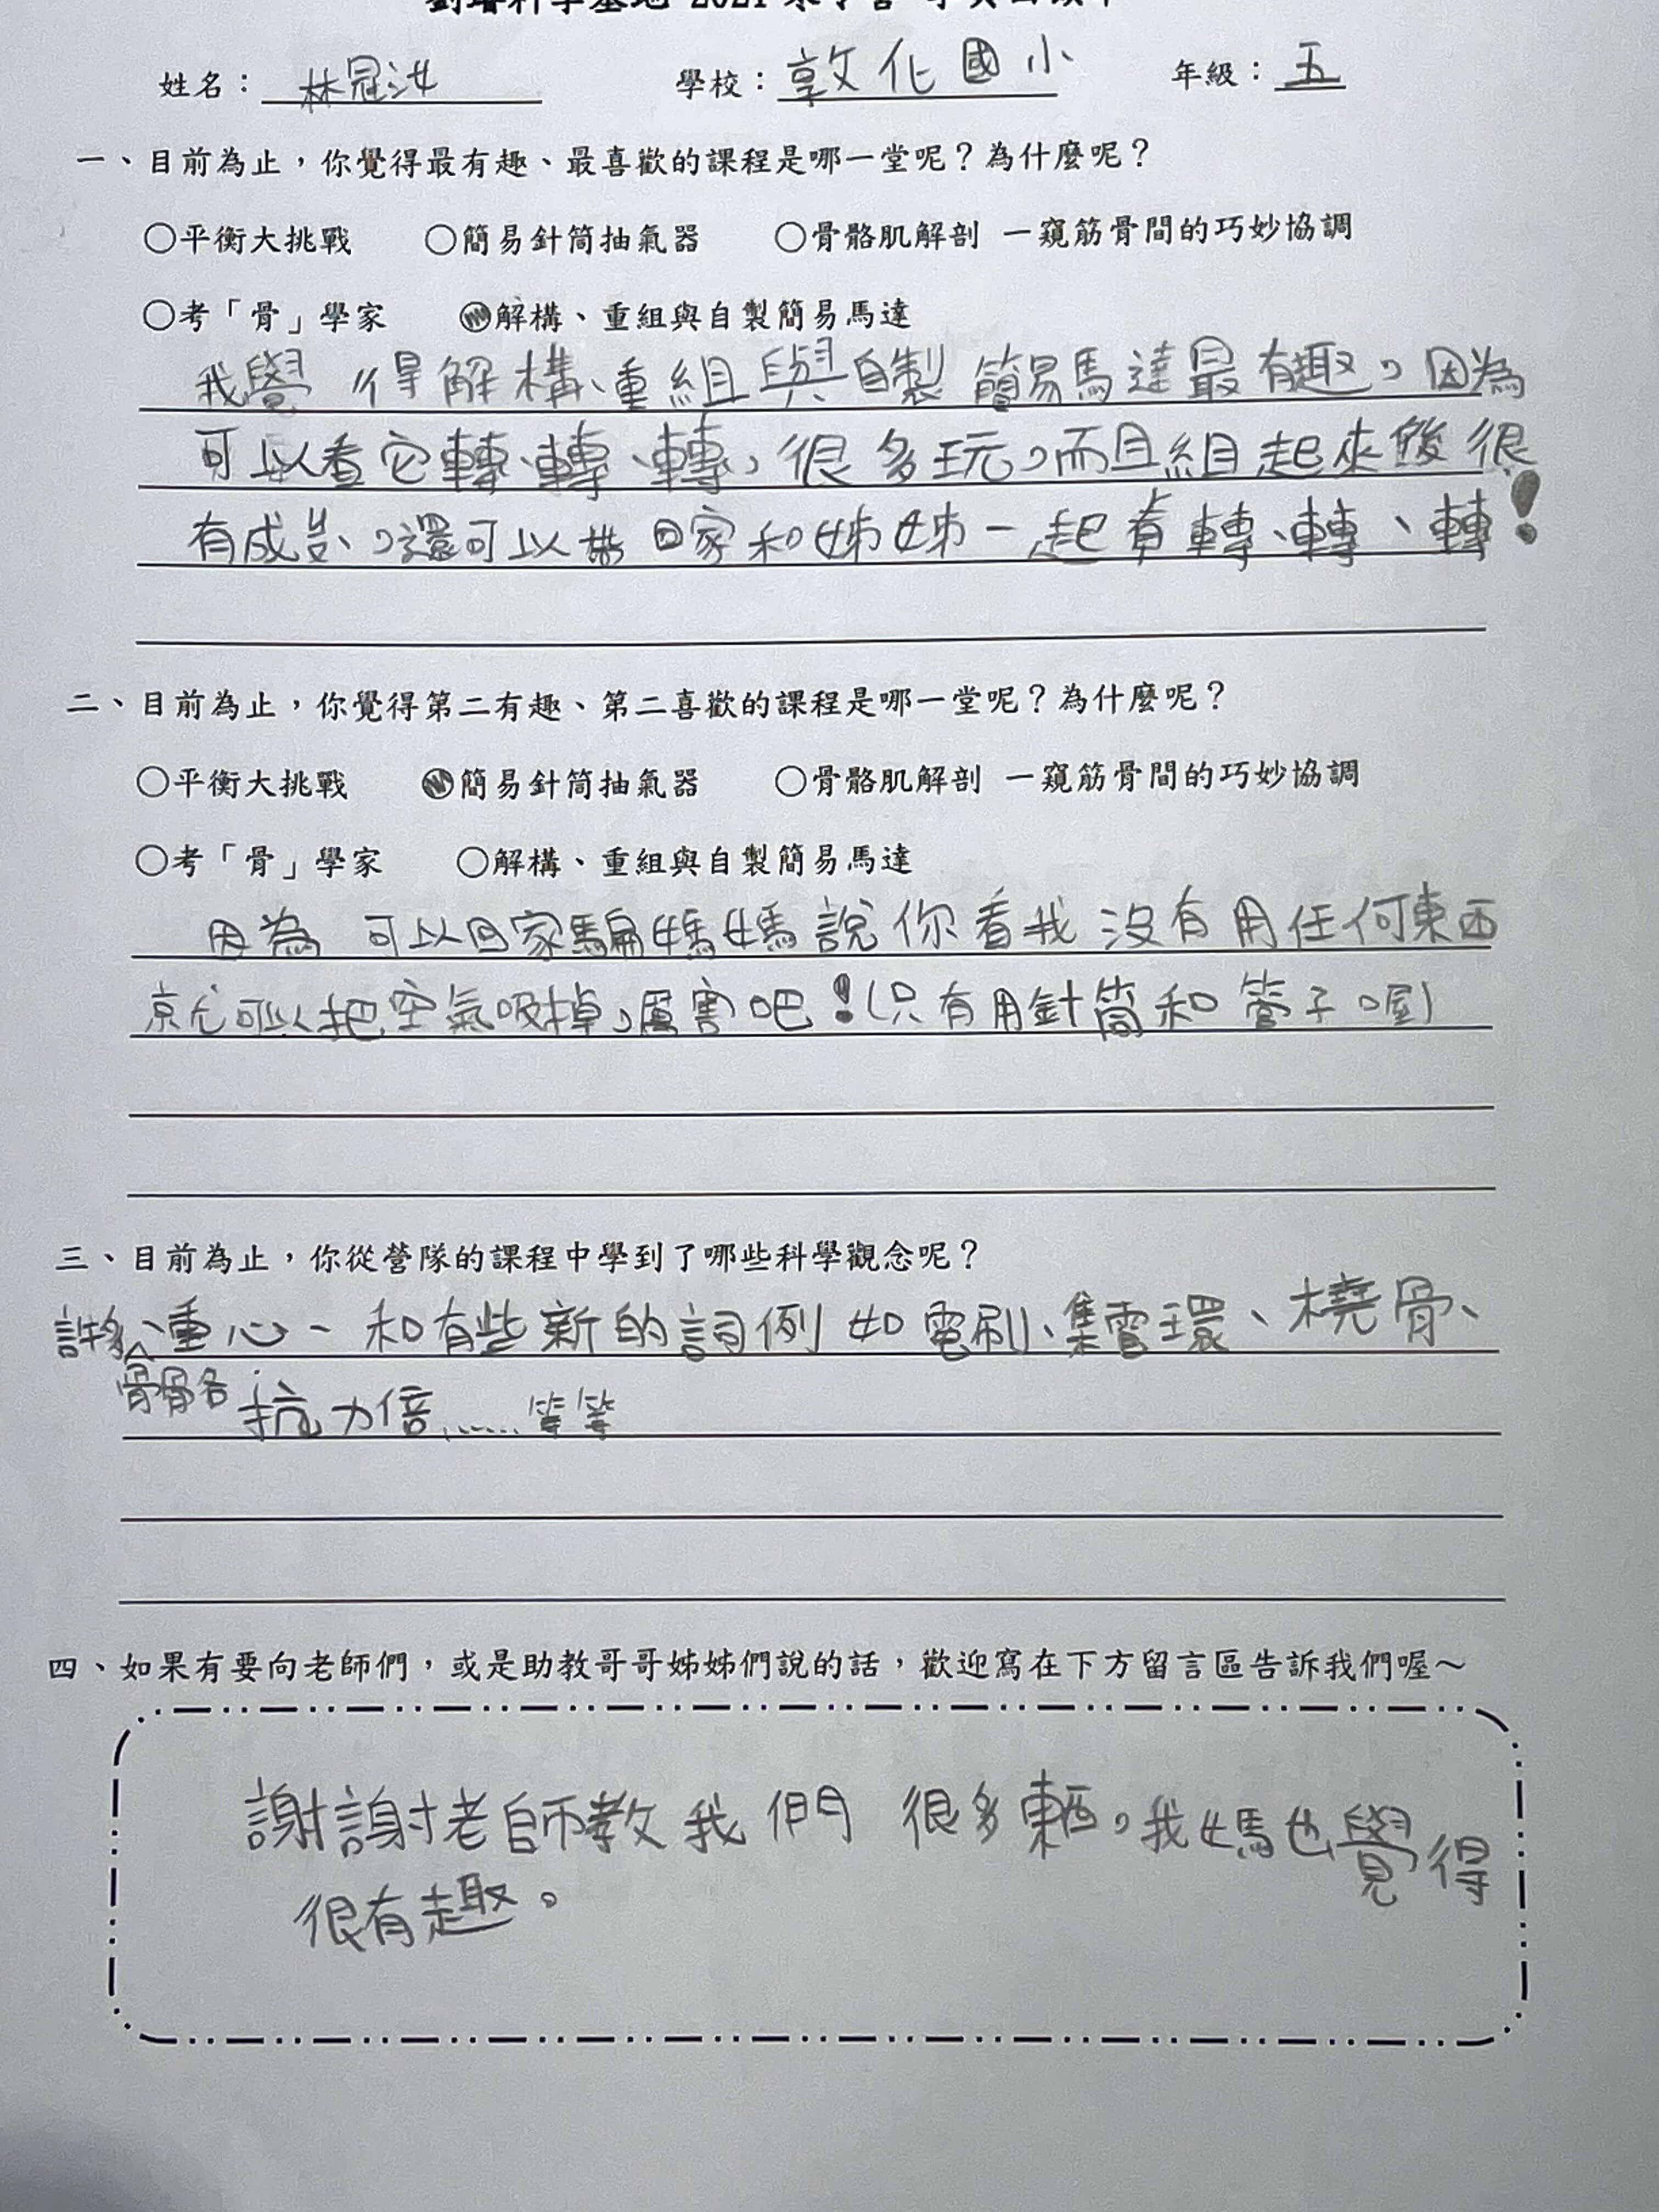 姓名：林冠汝 學校：敦化國小 年級：五
一、目前為止，你覺得最有趣、最喜歡的課程是哪一堂呢？為什麼呢？
○平衡大挑戰 ○簡易針筒抽氣器 ○骨骼肌解剖 一窺筋骨間的巧妙協調
○考「骨」學家 ○解構、重組與自製簡易馬達
我覺得解構、重組與自製簡易馬達最有趣，因為
可以看它轉、轉、轉，很多玩，而且組起來後很
有成，還可以帶回家和姊姊一起看轉、轉、轉！
二、目前為止，你覺得第二有趣、第二喜歡的課程是哪一堂呢？為什麼呢？
○平衡大挑戰 ○簡易針筒抽氣器 ○骨骼肌解剖 一窺筋骨間的巧妙協調
○考「骨」學家 ○解構、重組與自製簡易馬達
因為 可以回家騙媽媽說你看我沒有用任何東西
就可以把空氣吸掉，厲害吧！(只有用針筒和管子喔)
三、目前為止，你從營隊的課程中學到了哪些科學觀念呢？
許多、重心、和有些新的詞例如電刷、集電環、橈骨、
骨骼
抗力倍……等等
四、如果有要向老師們，或是助教哥哥姊姊們說的話，歡迎寫在下方留言區告訴我們喔～
謝謝老師教我們 很多東西，我媽也覺得
很有趣。